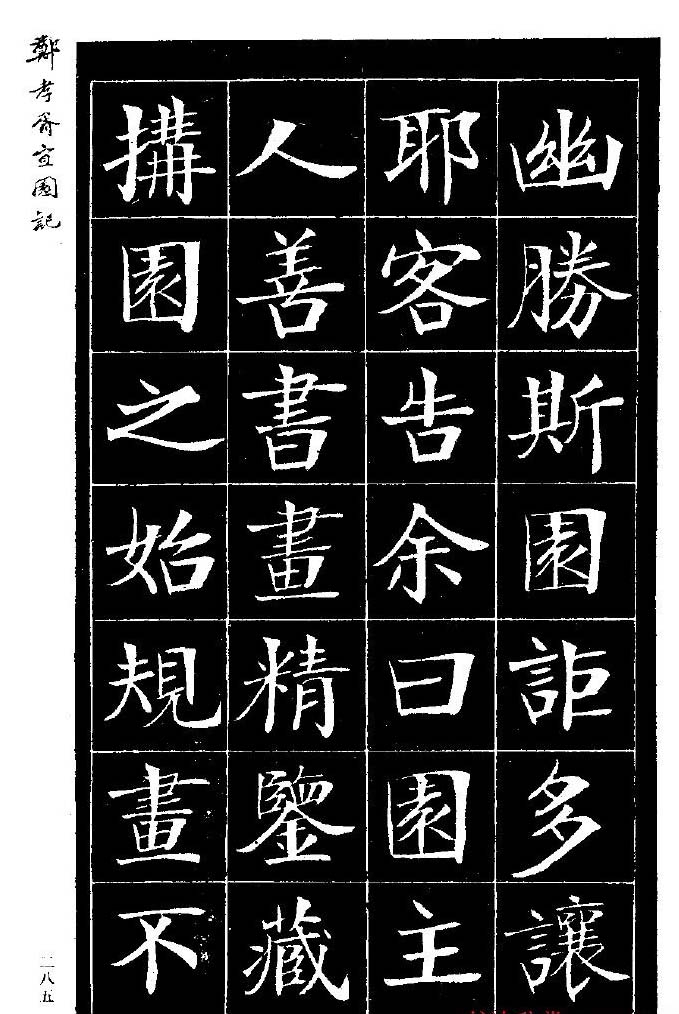 幽勝斯園詎多讓
耶客告余曰園主
人善書畫精鑒藏
搆園之始規畫不
鄭孝胥宜園記
二八五